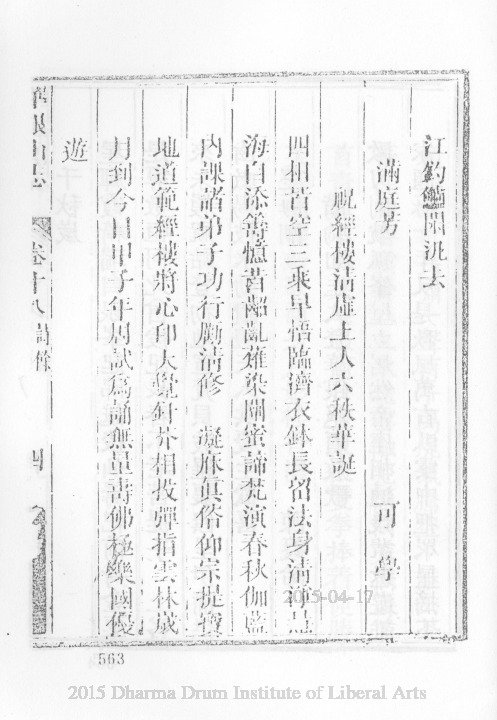 江釣鱸閑泚去
滿庭芳　可學
祝經樓清虛上人六秩華誕
四相苦空三乘早悟臨濟衣鉢長留法身清淨
海白添籌憶昔齠齓薙染閘蜜諦梵演春秋伽藍
內課諸弟子功行勵清修　凝庥眞俗仰宗提寶
地道範經樓將心印大覺針芥相投彈指雲林歲
月到今日甲子年周試爲誦無量壽佛極樂國優
遊
卷十八詩餘
四
563
2015-04-17
2015 Dharma Drum Institute of Liberal Arts